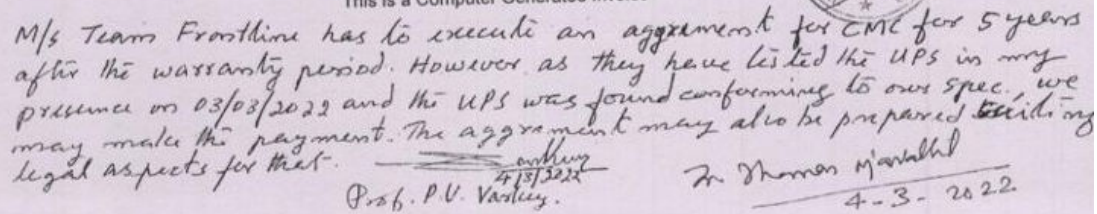 This is a Computer Generated Invoice
M/s Team Frontline has to execute an aggrement for CMC for 5 years
after the warranty period. However as they have tested the UPS in my
presence on 03/03/2022 and the UPS was found conforming to our spec., we
may make the payment. The aggrament may also be prepared suiting
legal aspects for that.
4/3/2022
Prof. P.V. Varkey.
4-3-2022